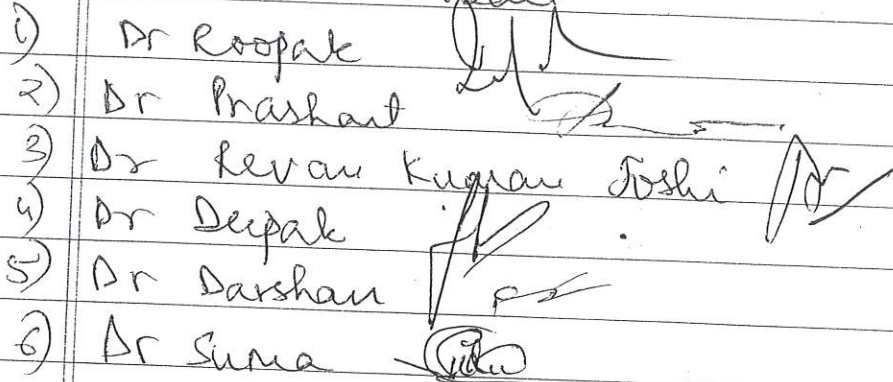 1) Dr Roopak
2) Dr Prashant
3) Dr Revan Kumar Joshi
4) Dr Deepak
5) Dr Darshan
6) Dr Suma